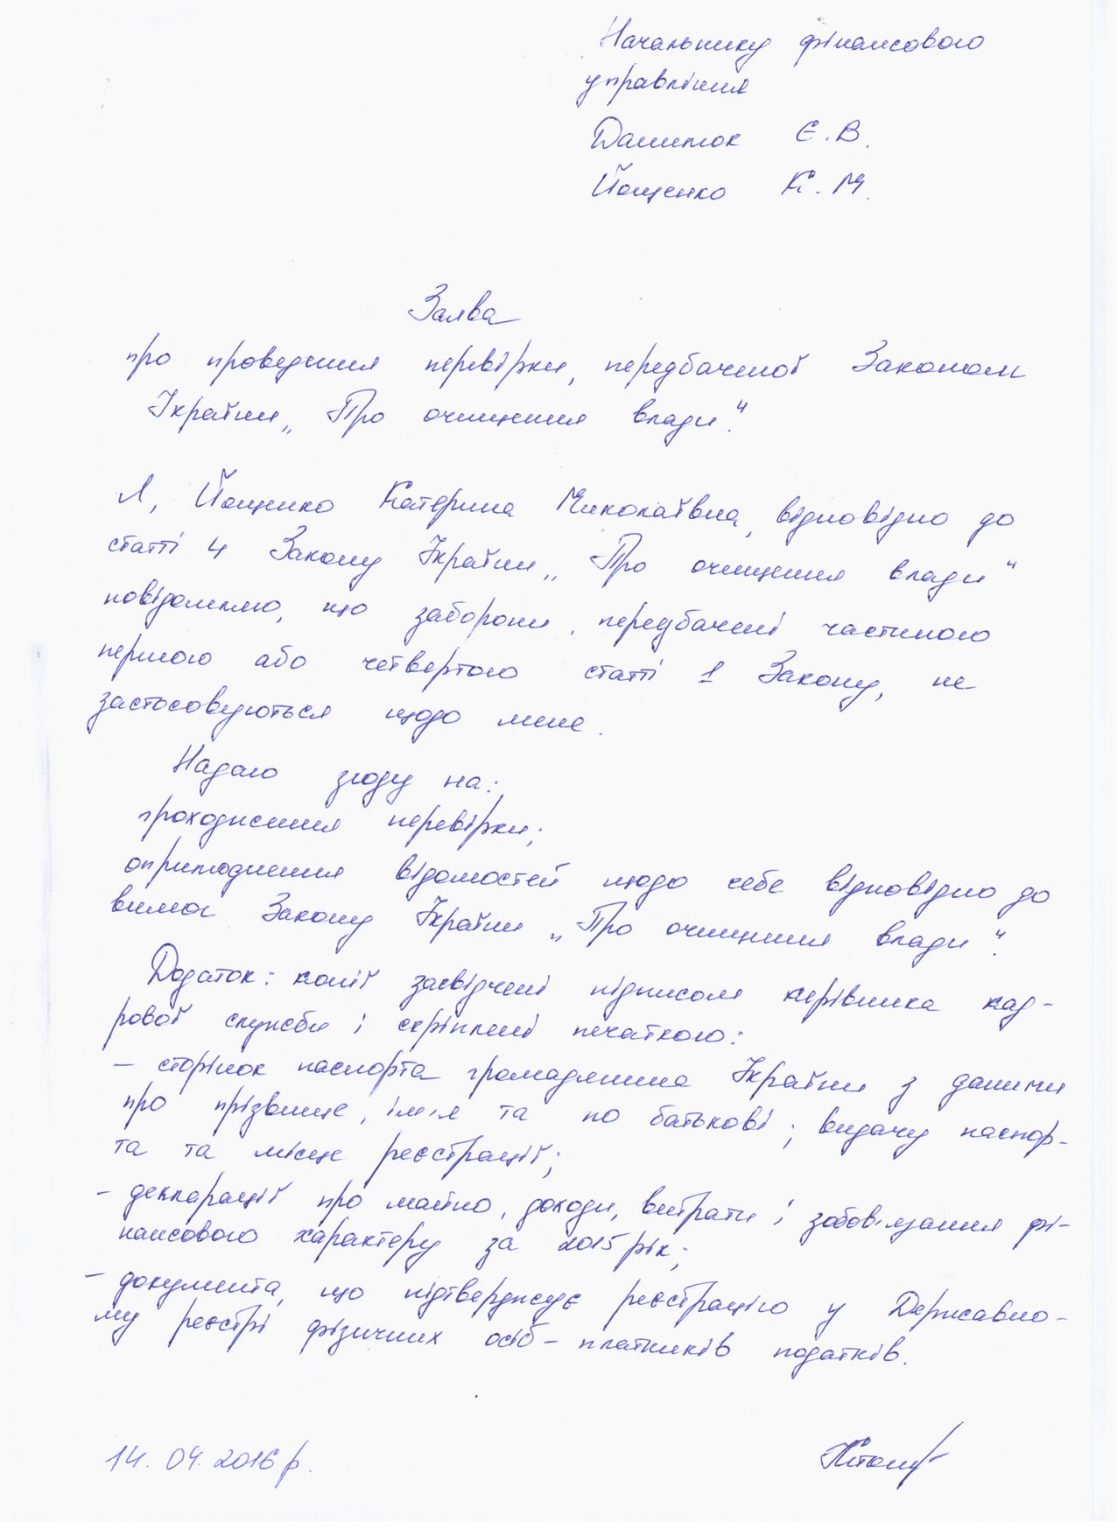 Начальнику фінансового
управління
Данилюк Є. В.
Йощенко К. М.
Заява
про проведення перевірки, передбаченої Законом
України „Про очищення влади".
Я, Йощенко Катерина Миколаївна, відповідно до
статті 4 Закону України „Про очищення влади"
повідомляю, що заборони, передбачені частиною
першою або четвертою статті 1 Закону, не
застосовуються щодо мене.
Надаю згоду на:
проходження перевірки;
оприлюднення відомостей щодо себе відповідно до
вимог Закону України „Про очищення влади".
Додаток: копії засвідчені підписом керівника кад-
рової служби і скріплені печаткою:
– сторінок паспорта громадянина України з даними
про прізвище, ім'я та по батькові; видачу паспор-
та та місце реєстрації;
– декларації про майно, доходи, витрати і зобов'язання фі-
нансового характеру за 2015 рік;
– документа, що підтверджує реєстрацію у Державно-
му реєстрі фізичних осіб – платників податків.
14. 04. 2016 р.